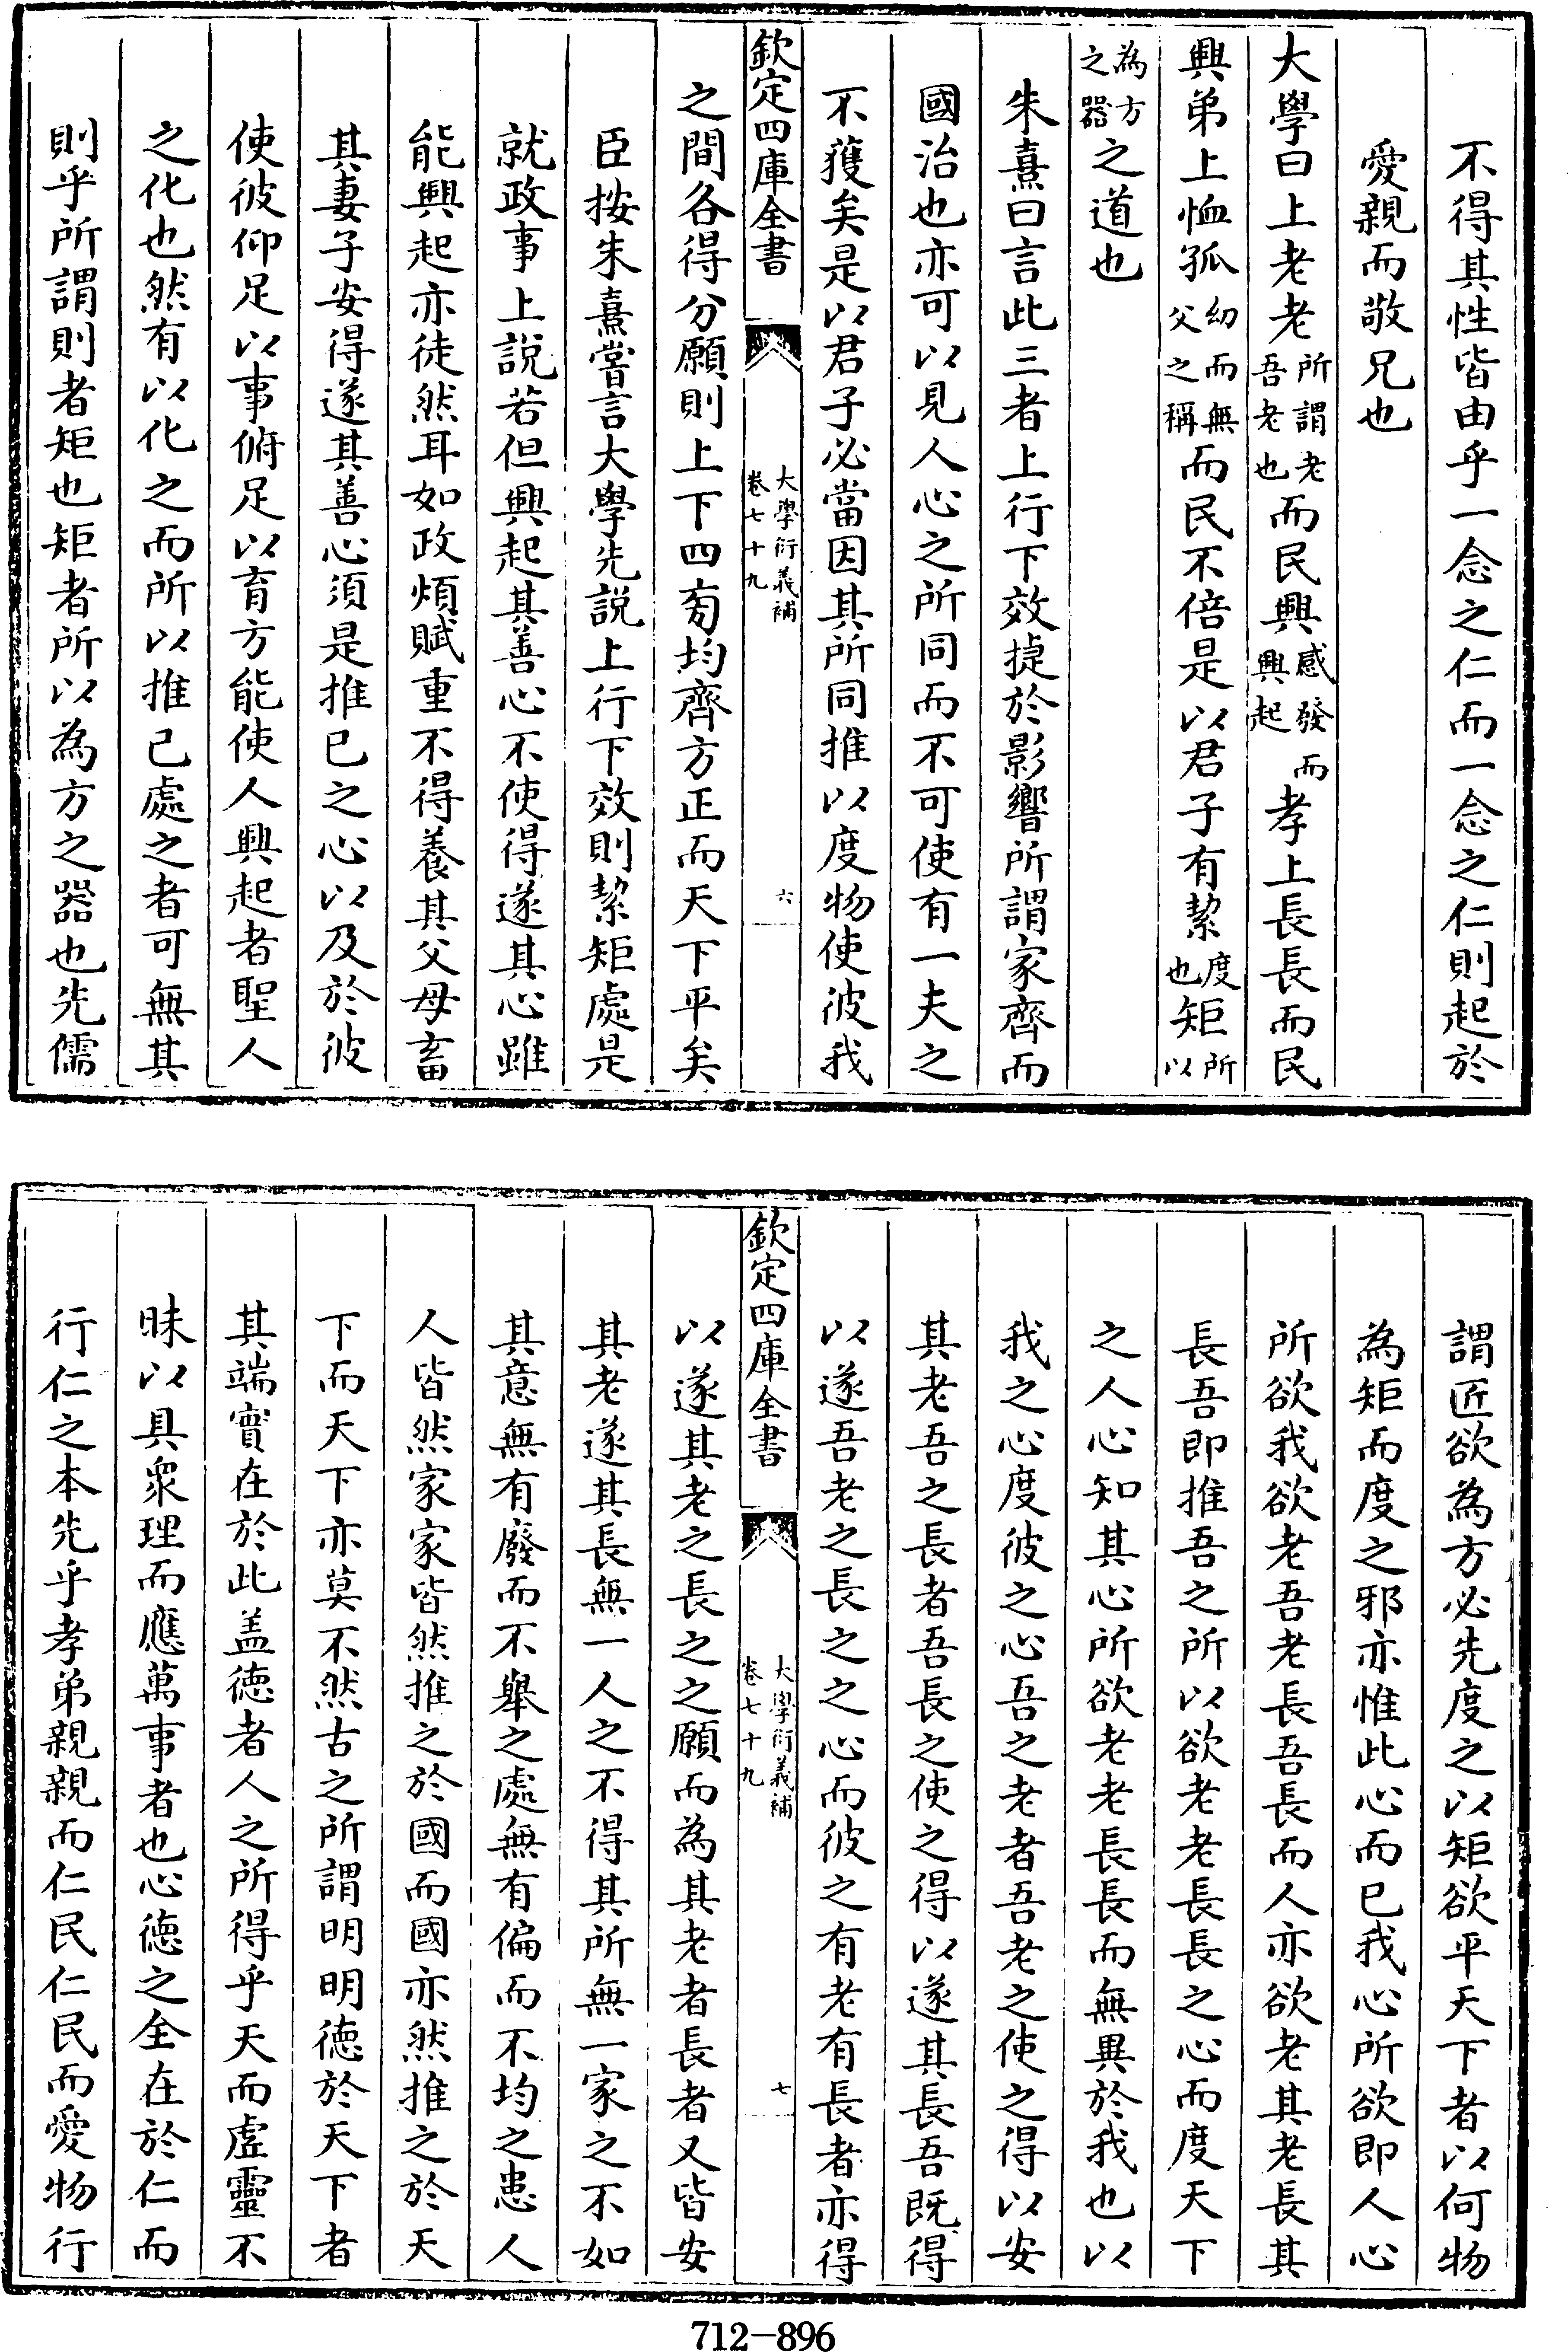 不得其性皆由乎一念之仁而一念之仁則起於
愛親而敬兄也
大學曰上老老所謂老吾老也而民興感發而興起孝上長長而民
興弟上恤孤幼而無父之稱而民不倍是以君子有絜度也矩所以
為方之器之道也
朱熹曰言此三者上行下效捷於影響所謂家齊而
國治也亦可以見人心之所同而不可使有一夫之
不獲矣是以君子必當因其所同推以度物使彼我
欽定四庫全書
大學衍義補
卷七十九
六
之間各得分願則上下四旁均齊方正而天下平矣
臣按朱熹嘗言大學先說上行下效則絜矩處是
就政事上說若但興起其善心不使得遂其心雖
能興起亦徒然耳如政煩賦重不得養其父母畜
其妻子安得遂其善心須是推已之心以及於彼
使彼仰足以事俯足以育方能使人興起者聖人
之化也然有以化之而所以推已處之者可無其
則乎所謂則者矩也矩者所以為方之器也先儒
謂匠欲為方必先度之以矩欲平天下者以何物
為矩而度之邪亦惟此心而已我心所欲即人心
所欲我欲老吾老長吾長而人亦欲老其老長其
長吾即推吾之所以欲老老長長之心而度天下
之人心知其心所欲老老長長而無異於我也以
我之心度彼之心吾之老者吾老之使之得以安
其老吾之長者吾長之使之得以遂其長吾既得
以遂吾老之長之之心而彼之有老有長者亦得
欽定四庫全書
大學衍義補
卷七十九
七
以遂其老之長之之願而為其老者長者又皆安
其老遂其長無一人之不得其所無一家之不如
其意無有廢而不舉之處無有偏而不均之患人
人皆然家家皆然推之於國而國亦然推之於天
下而天下亦莫不然古之所謂明明德於天下者
其端實在於此盖德者人之所得乎天而虛靈不
昧以具衆理而應萬事者也心德之全在於仁而
行仁之本先乎孝弟親親而仁民仁民而愛物行
712-896